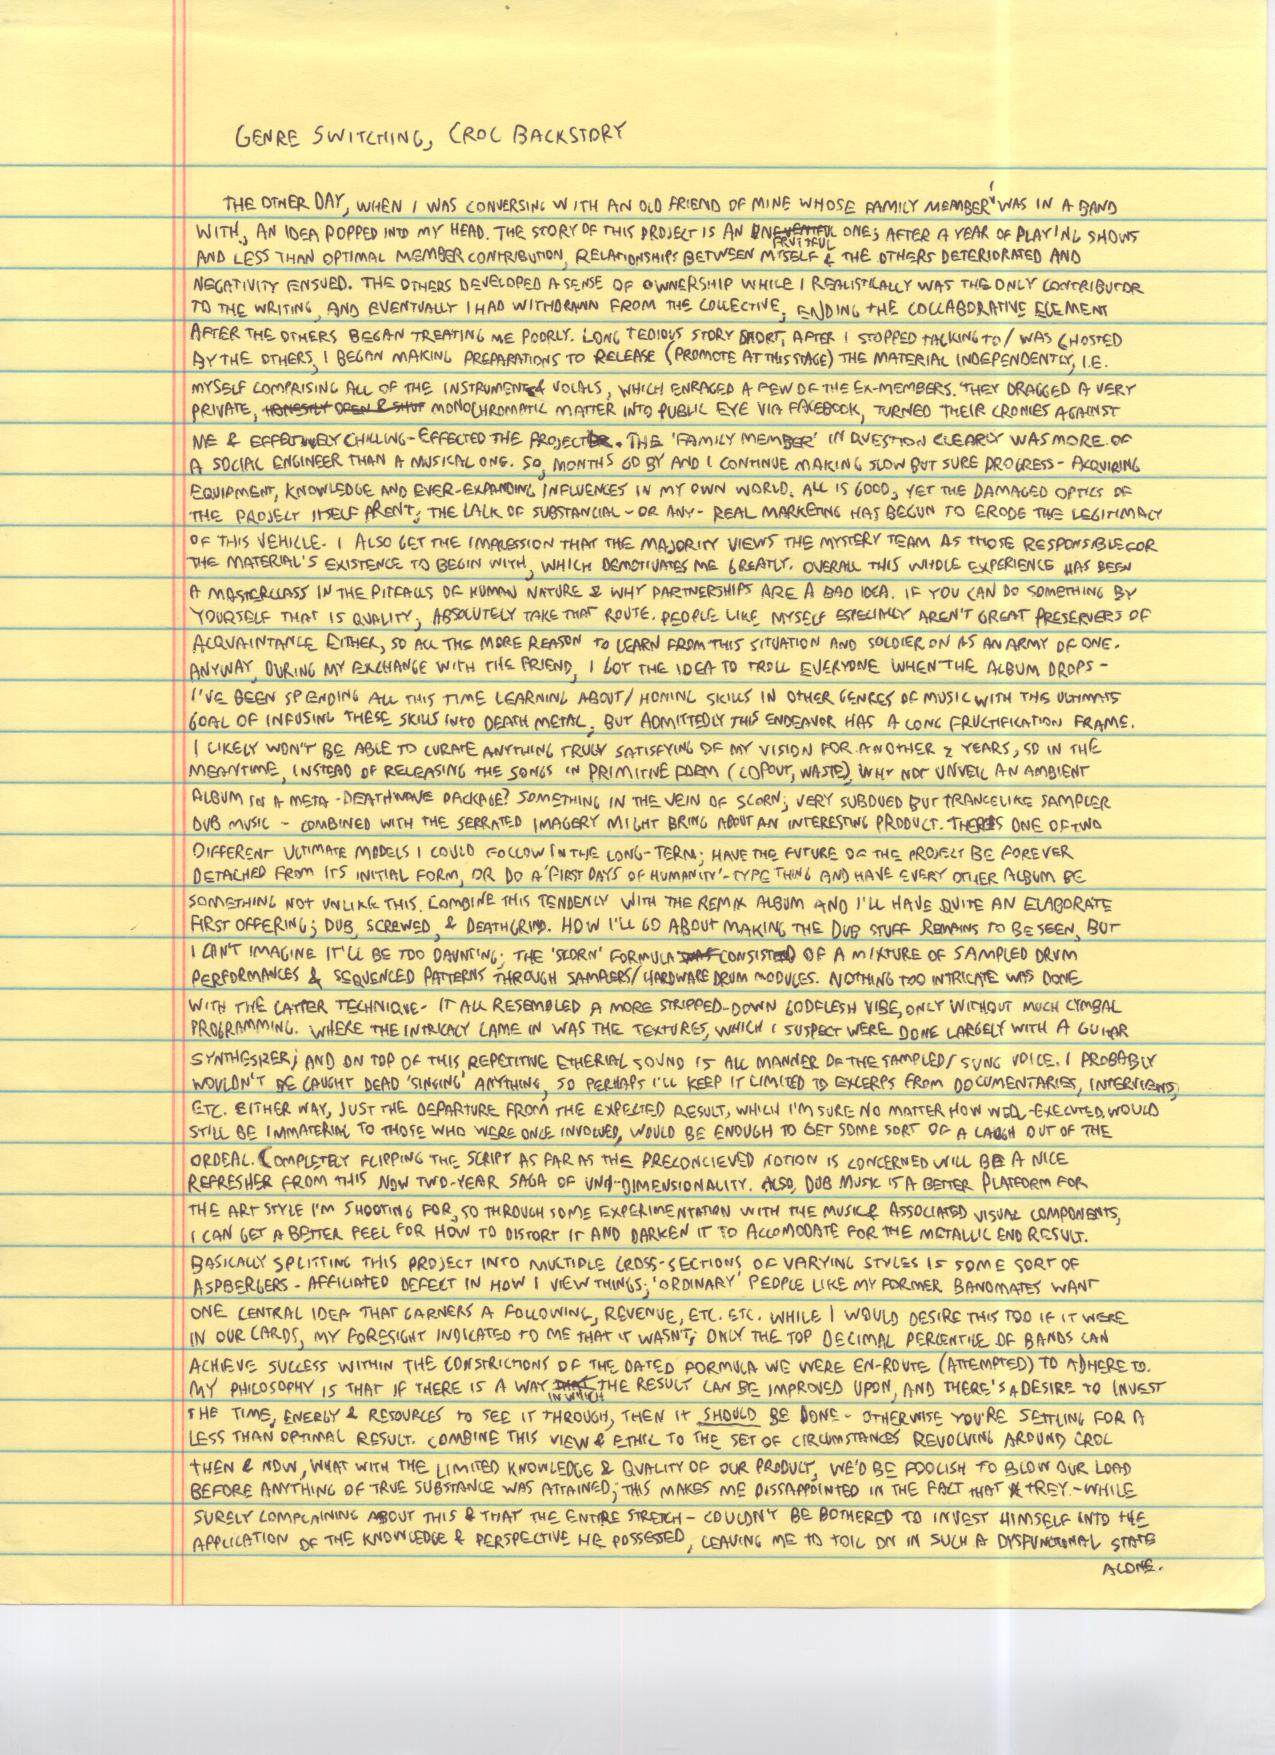 GENRE SWITCHING, CROC BACKSTORY
THE OTHER DAY, WHEN I WAS CONVERSING WITH AN OLD FRIEND OF MINE WHOSE FAMILY MEMBER I WAS IN A BAND
WITH, AN IDEA POPPED INTO MY HEAD. THE STORY OF THIS PROJECT IS AN UNEVENTFUL FRUITFUL ONE; AFTER A YEAR OF PLAYING SHOWS
AND LESS THAN OPTIMAL MEMBER CONTRIBUTION, RELATIONSHIPS BETWEEN MYSELF & THE OTHERS DETERIORATED AND
NEGATIVITY ENSUED. THE OTHERS DEVELOPED A SENSE OF OWNERSHIP WHILE I REALISTICALLY WAS THE ONLY CONTRIBUTOR
TO THE WRITING, AND EVENTUALLY I HAD WITHDRAWN FROM THE COLLECTIVE, ENDING THE COLLABORATIVE ELEMENT
AFTER THE OTHERS BEGAN TREATING ME POORLY. LONG TEDIOUS STORY SHORT, AFTER I STOPPED TALKING TO/WAS GHOSTED
BY THE OTHERS, I BEGAN MAKING PREPARATIONS TO RELEASE (PROMOTE AT THIS STAGE) THE MATERIAL INDEPENDENTLY, I.E.
MYSELF COMPRISING ALL OF THE INSTRUMENTS & VOCALS, WHICH ENRAGED A FEW OF THE EX-MEMBERS. THEY DRAGGED A VERY
PRIVATE, HONESTLY OPEN & SHUT MONOCHROMATIC MATTER INTO PUBLIC EYE VIA FACEBOOK, TURNED THEIR CRONIES AGAINST
ME & EFFECTIVELY CHILLING-EFFECTED THE PROJECT. THE 'FAMILY MEMBER' IN QUESTION CLEARLY WAS MORE OF
A SOCIAL ENGINEER THAN A MUSICAL ONE. SO, MONTHS GO BY AND I CONTINUE MAKING SLOW BUT SURE PROGRESS - ACQUIRING
EQUIPMENT, KNOWLEDGE AND EVER-EXPANDING INFLUENCES IN MY OWN WORLD. ALL IS GOOD, YET THE DAMAGED OPTICS OF
THE PROJECT ITSELF AREN'T; THE LACK OF SUBSTANCIAL - OR ANY - REAL MARKETING HAS BEGUN TO ERODE THE LEGITIMACY
OF THIS VEHICLE. I ALSO GET THE IMPRESSION THAT THE MAJORITY VIEWS THE MYSTERY TEAM AS THOSE RESPONSIBLE FOR
THE MATERIAL'S EXISTENCE TO BEGIN WITH, WHICH DEMOTIVATES ME GREATLY. OVERALL THIS WHOLE EXPERIENCE HAS BEEN
A MASTERCLASS IN THE PITFALLS OF HUMAN NATURE & WHY PARTNERSHIPS ARE A BAD IDEA. IF YOU CAN DO SOMETHING BY
YOURSELF THAT IS QUALITY, ABSOLUTELY TAKE THAT ROUTE. PEOPLE LIKE MYSELF ESPECIALLY AREN'T GREAT PRESERVERS OF
ACQUAINTANCE EITHER, SO ALL THE MORE REASON TO LEARN FROM THIS SITUATION AND SOLDIER ON AS AN ARMY OF ONE.
ANYWAY, DURING MY EXCHANGE WITH THE FRIEND, I GOT THE IDEA TO TROLL EVERYONE WHEN THE ALBUM DROPS -
I'VE BEEN SPENDING ALL THIS TIME LEARNING ABOUT/HONING SKILLS IN OTHER GENRES OF MUSIC WITH THE ULTIMATE
GOAL OF INFUSING THESE SKILLS INTO DEATH METAL, BUT ADMITTEDLY THIS ENDEAVOR HAS A LONG FRUCTIFICATION FRAME.
I LIKELY WON'T BE ABLE TO CURATE ANYTHING TRULY SATISFYING OF MY VISION FOR ANOTHER 2 YEARS, SO IN THE
MEANTIME, INSTEAD OF RELEASING THE SONGS IN PRIMITIVE FORM (COPOUT, WASTE), WHY NOT UNVEIL AN AMBIENT
ALBUM IN A META-DEATHWAVE PACKAGE? SOMETHING IN THE VEIN OF SCORN; VERY SUBDUED BUT TRANCELIKE SAMPLER
DUB MUSIC - COMBINED WITH THE SERRATED IMAGERY MIGHT BRING ABOUT AN INTERESTING PRODUCT. THERE'S ONE OF TWO
DIFFERENT ULTIMATE MODELS I COULD FOLLOW IN THE LONG-TERM; HAVE THE FUTURE OF THE PROJECT BE FOREVER
DETACHED FROM ITS INITIAL FORM, OR DO A 'FIRST DAYS OF HUMANITY'-TYPE THING AND HAVE EVERY OTHER ALBUM BE
SOMETHING NOT UNLIKE THIS. COMBINE THIS TENDENCY WITH THE REMIX ALBUM AND I'LL HAVE QUITE AN ELABORATE
FIRST OFFERING; DUB, SCREWED, & DEATHGRIND. HOW I'LL GO ABOUT MAKING THE DUB STUFF REMAINS TO BE SEEN, BUT
I CAN'T IMAGINE IT'LL BE TOO DAUNTING; THE 'SCORN' FORMULA CONSISTED OF A MIXTURE OF SAMPLED DRUM
PERFORMANCES & SEQUENCED PATTERNS THROUGH SAMPLERS/HARDWARE DRUM MODULES. NOTHING TOO INTRICATE WAS DONE
WITH THE LATTER TECHNIQUE - IT ALL RESEMBLED A MORE STRIPPED-DOWN GODFLESH VIBE, ONLY WITHOUT MUCH CYMBAL
PROGRAMMING. WHERE THE INTRICACY CAME IN WAS THE TEXTURES, WHICH I SUSPECT WERE DONE LARGELY WITH A GUITAR
SYNTHESIZER; AND ON TOP OF THIS REPETITIVE ETHERIAL SOUND IS ALL MANNER OF THE SAMPLED/SUNG VOICE. I PROBABLY
WOULDN'T BE CAUGHT DEAD 'SINGING' ANYTHING, SO PERHAPS I'LL KEEP IT LIMITED TO EXCERPS FROM DOCUMENTARIES, INTERVIEWS,
ETC. EITHER WAY, JUST THE DEPARTURE FROM THE EXPECTED RESULT, WHICH I'M SURE NO MATTER HOW WELL-EXECUTED, WOULD
STILL BE IMMATERIAL TO THOSE WHO WERE ONCE INVOLVED, WOULD BE ENOUGH TO GET SOME SORT OF A LAUGH OUT OF THE
ORDEAL. COMPLETELY FLIPPING THE SCRIPT AS FAR AS THE PRECONCIEVED NOTION IS CONCERNED WILL BE A NICE
REFRESHER FROM THIS NOW TWO-YEAR SAGA OF UNI-DIMENSIONALITY. ALSO, DUB MUSIC IS A BETTER PLATFORM FOR
THE ART STYLE I'M SHOOTING FOR, SO THROUGH SOME EXPERIMENTATION WITH THE MUSIC & ASSOCIATED VISUAL COMPONENTS,
I CAN GET A BETTER FEEL FOR HOW TO DISTORT IT AND DARKEN IT TO ACCOMODATE FOR THE METALLIC END RESULT.
BASICALLY SPLITTING THIS PROJECT INTO MULTIPLE CROSS-SECTIONS OF VARYING STYLES IS SOME SORT OF
ASPBERGERS-AFFILIATED DEFECT IN HOW I VIEW THINGS; 'ORDINARY' PEOPLE LIKE MY FORMER BANDMATES WANT
ONE CENTRAL IDEA THAT GARNERS A FOLLOWING, REVENUE, ETC. ETC. WHILE I WOULD DESIRE THIS TOO IF IT WERE
IN OUR CARDS, MY FORESIGHT INDICATED TO ME THAT IT WASN'T; ONLY THE TOP DECIMAL PERCENTILE OF BANDS CAN
ACHIEVE SUCCESS WITHIN THE CONSTRICTIONS OF THE DATED FORMULA WE WERE EN-ROUTE (ATTEMPTED) TO ADHERE TO.
MY PHILOSOPHY IS THAT IF THERE IS A WAY THAT IN WHICH THE RESULT CAN BE IMPROVED UPON, AND THERE'S A DESIRE TO INVEST
THE TIME, ENERGY & RESOURCES TO SEE IT THROUGH, THEN IT SHOULD BE DONE - OTHERWISE YOU'RE SETTLING FOR A
LESS THAN OPTIMAL RESULT. COMBINE THIS VIEW & ETHIC TO THE SET OF CIRCUMSTANCES REVOLVING AROUND CROC
THEN & NOW, WHAT WITH THE LIMITED KNOWLEDGE & QUALITY OF OUR PRODUCT, WE'D BE FOOLISH TO BLOW OUR LOAD
BEFORE ANYTHING OF TRUE SUBSTANCE WAS ATTAINED; THIS MAKES ME DISSAPPOINTED IN THE FACT THAT TREY - WHILE
SURELY COMPLAINING ABOUT THIS & THAT THE ENTIRE STRETCH - COULDN'T BE BOTHERED TO INVEST HIMSELF INTO THE
APPLICATION OF THE KNOWLEDGE & PERSPECTIVE HE POSSESSED, LEAVING ME TO TOIL ON IN SUCH A DYSFUNCTIONAL STATE
ALONE.